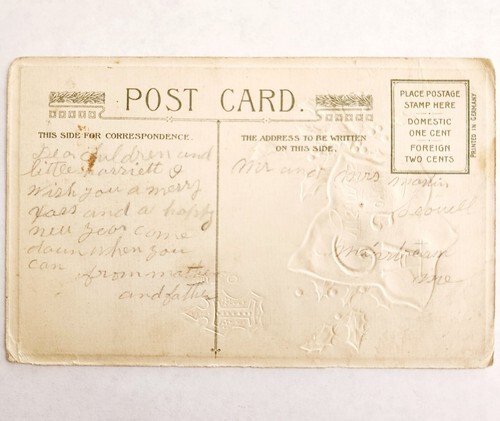 POST CARD.
THIS SIDE FOR CORRESPONDENCE.
THE ADDRESS TO BE WRITTEN
ON THIS SIDE.
PLACE POSTAGE
STAMP HERE
DOMESTIC
ONE CENT
FOREIGN
TWO CENTS
PRINTED IN GERMANY
Dear Children and
little Harriett I
wish you a merry
Xmas and a happy
new year come
down when you
can
from mother
and father
Mr and Mrs